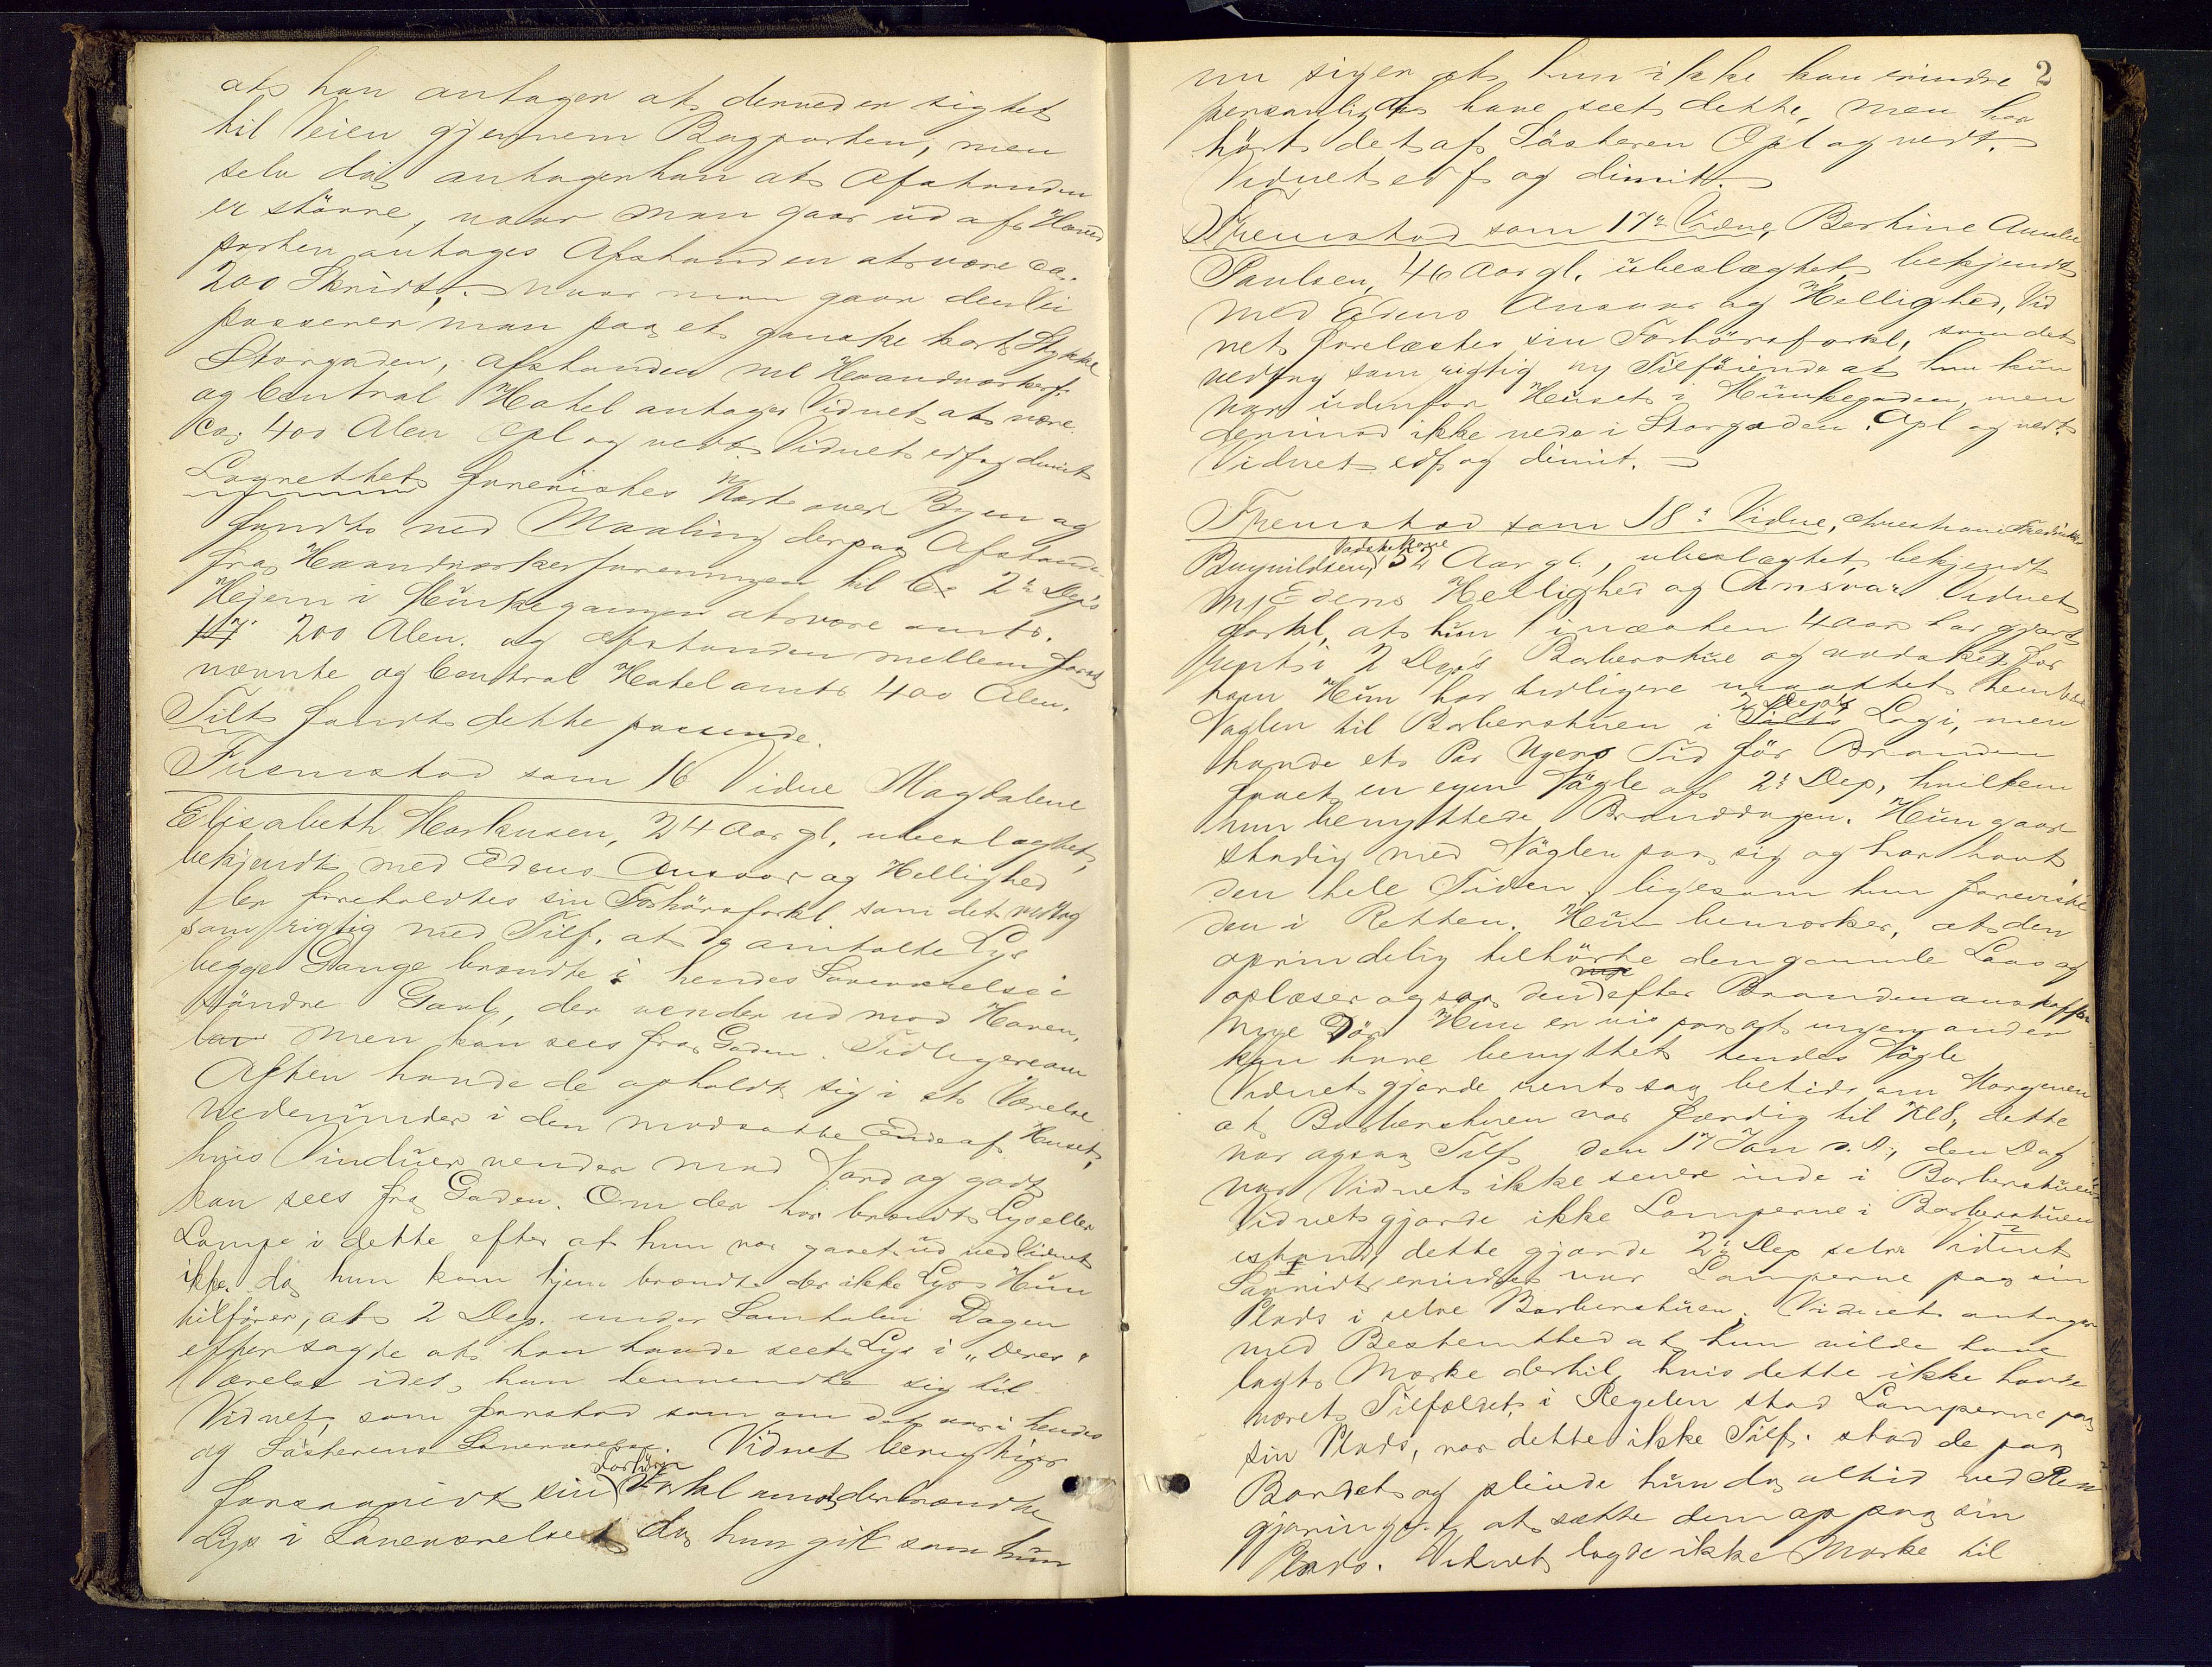 at han antager at derved er sigtet
til Veien gjennem Bagporten, men
selv da antager han at Afstanden
er større, naar man gaar ud af Hoved
porten antages Afstanden at være ca.
200 Skridt,. naar man gaar den Vei
passerer man paa et ganske kort Stykke
Storgaden, Afstanden ml Haandværkerf.
og Central Hotel antager Vidnet at være
ca. 400 Alen Opl og vedt. Vidnet edf og dimit
Lagrettet forevistes Kart over Byen og
fandt ved Maaling derpaa Afstanden
fra Haandværkerforeningen til 2n Dep's
Hjem i Munkegangen at være omtr.
117 200 Alen. og Afstanden mellem først
nævnte og Central Hotel omtr 400 Alen.
Tilt fandt dette passende.
Fremstod som 16 Vidne Magdalene
Elisabeth Markusen, 24 Aar gl, ubeslægtet,
bekjendt med Edens Ansvar og Hellighed
der foreholdtes sin Forhørsforkl som det vedtog
som rigtig med Tilf. at da omtalte Lys
begge Gange brændte i hendes Soveværelse i
søndre Gavl, der vender ud mod Haven,
men kan sees fra Gaden. Tidligere om
Aften havde de opholdt sig i et Værelse
nedenunder i den modsatte Ende af Huset,
hvis Vinduer vender mod Jord og godt
kan sees fra Gaden. Om der har brændt Lys eller
Lampe i dette efter at hun var gaaet ud ved Vidnet
ikke. da hun kom hjem brændte der ikke Lys Hun
tilføier, at 2 Dep. under Samtalen Dagen
efter sagde at han havde seet Lys i "Deres"
Værelse idet han henvendte sig til
Vidnet, som forstod som om det var i hendes
og Søsterens Soveværelse. Vidnet berigtiger
forsaavidt sin Forhørs Forkl om at der brændte
Lys i Soveværelset da hun gik som hun
2
nu siger at hun ikke kan erindre
personlig at have seet dette, men har
hørt det af Søsteren Opl og vedt.
Vidnet edf og dimit.
Fremstod som 17n Vidne, Bertine Amalie
Paulsen, 46 Aar gl. ubeslægtet bekjendt
med Edens Ansvar og Hellighed, Vid
net forelæstes sin Forhørsforkl, som det
vedtog som rigtig og Tilføiende at hun kun
var udenfor Huset i Munkegaden, men
derimod ikke nede i Storgaden. Opl og vedt.
Vidnet edf og dimit.
Fremstod som 18: Vidne, Christiane Fredrikke
Bugnildsen, Vadskekone 52 Aar gl., ubeslægtet, bekjendt
m/ Edens Hellighed og Ansvar Vidnet
forkl, at hun i næsten 4 Aar har gjort
rent i 2 Dep's Barberstue og vadsket for
ham Hun har tidligere maattet hente
Nøglen til Barberstuen i 2 Dep's Logi, men
havde et Par Ugers Tid før Branden
faaet en egen Nøgle af 2: Dep, hvilken
hun benyttede Branddagen. Hun gaar
stadig med Nøglen paa sig og har havt
den hele Tiden, ligesom hun foreviste
den i Retten. Hun bemærker, at den
oprindelig tilhørte den gamle Laas og
oplaser ogsaa den efter Branden anskaffede
nye Dør Hun er vis paa at ingen anden
kan have benyttet hendes Nøgle
Vidnet gjorde rent saa betids om Morgenen
at Barberstuen var færdig til Kl 8, dette
var ogsaa Tilf den 17 Jan d. A., den Dag
var Vidnet ikke senere inde i Barberstuen
Vidnet gjorde ikke Lamperne i Barberstuen
istand, dette gjorde 2n Dep selv Vidnet
Saavidt erindres var Lamperne paa sin
Plads i selve Barberstuen. Vidnet antager
med Bestemthed at hun vilde have
lagt Mærke dertil, hvis dette ikke havde
været Tilfældet, i Regelen stod Lamperne paa
sin Plads, var dette ikke Tilf. stod de paa
Bordet og pleiede hun da altid ved Ren
gjøringen at sætte dem op paa sin
Plads. Vidnet lagde ikke Mærke til